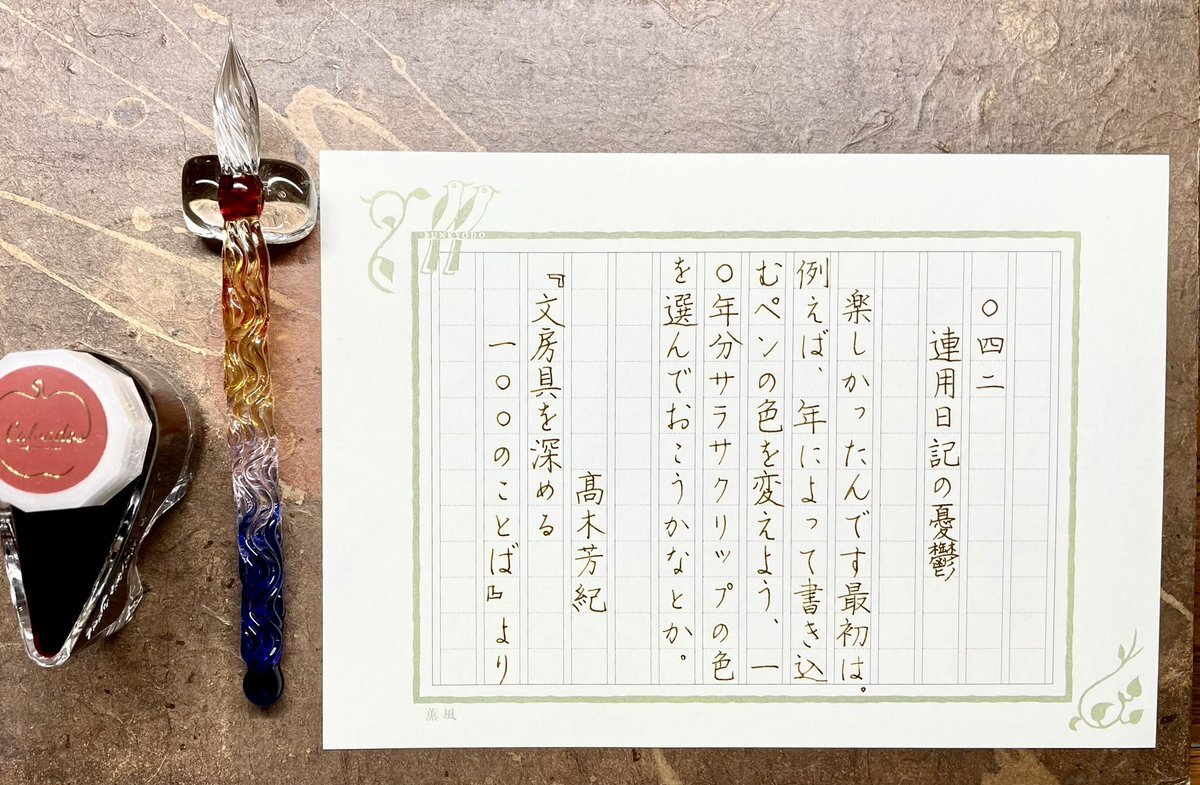 〇四二
連用日記の憂鬱
楽しかったんです最初は。
例えば、年によって書き込
むペンの色を変えよう、一
〇年分サラサクリップの色
を選んでおこうかなとか。
髙木芳紀
『文房具を深める
一〇〇のことば』より
BUNKYODO
薫風